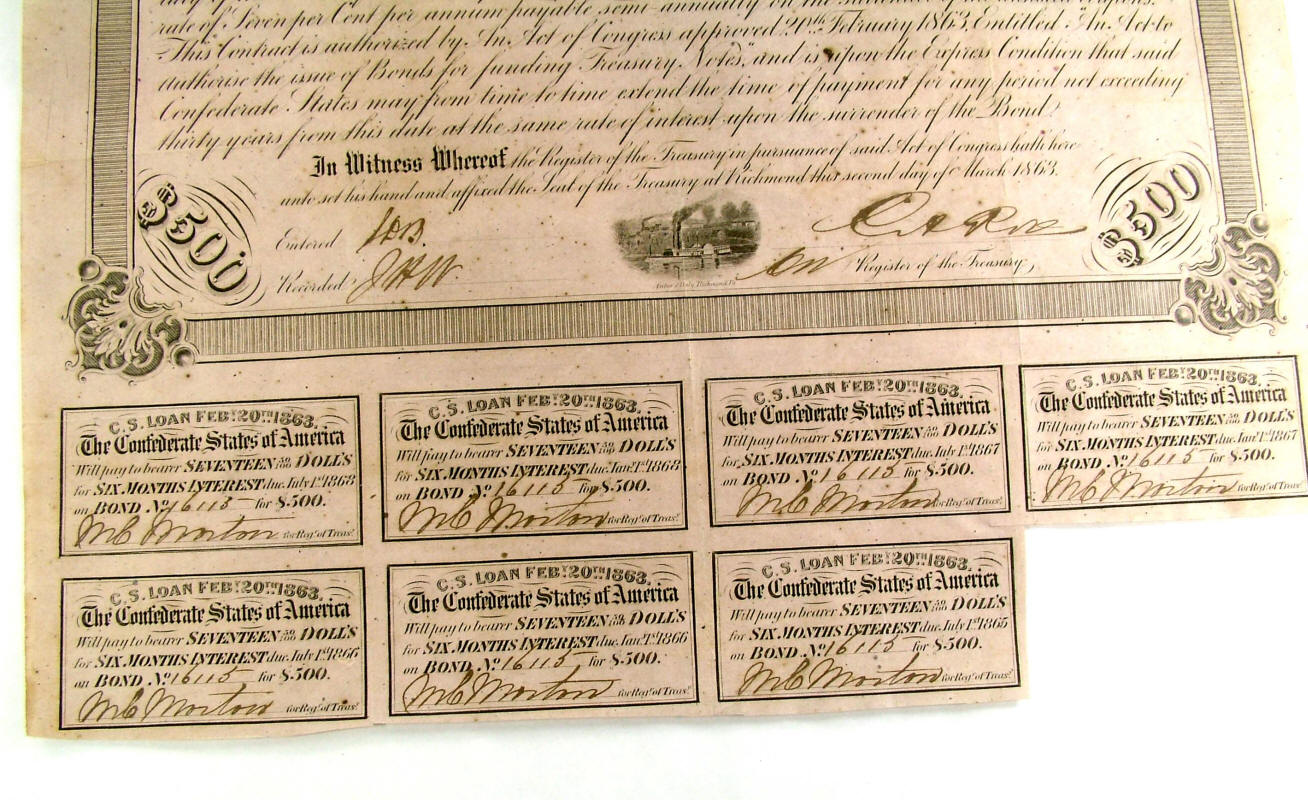 rate of Seven per Cent per annum payable semi-annually on the
This Contract is authorized by An Act of Congress approved 20th February 1863, Entitled "An Act to
authorise the issue of Bonds for funding Treasury Notes," and is upon the Express Condition that said
Confederate States may from time to time extend the time of payment for any period not exceeding
thirty years from this date at the same rate of interest upon the surrender of the Bond.
In Witness Whereof the Register of the Treasury in pursuance of said Act of Congress hath here
unto set his hand and affixed the Seal of the Treasury at Richmond this second day of March 1863.
$500
$500
Entered
Recorded J H W
Register of the Treasury,
C.S. LOAN FEBY. 20TH 1863.
The Confederate States of America
Will pay to bearer SEVENTEEN 50/100 DOLL'S
for SIX MONTHS INTEREST due July 1st 1868
on BOND No. 16115 for $.500.
M C Morton for Regr. of Treasy.
C.S. LOAN FEBY. 20TH 1863.
The Confederate States of America
Will pay to bearer SEVENTEEN 50/100 DOLL'S
for SIX MONTHS INTEREST due Jany. 1st 1868
on BOND No. 16115 for $.500.
M C Morton for Regr. of Treasy.
C.S. LOAN FEBY. 20TH 1863.
The Confederate States of America
Will pay to bearer SEVENTEEN 50/100 DOLL'S
for SIX MONTHS INTEREST due July 1st 1867
on BOND No. 16115 for $.500.
M C Morton for Regr. of Treasy.
C.S. LOAN FEBY. 20TH 1863.
The Confederate States of America
Will pay to bearer SEVENTEEN 50/100 DOLL'S
for SIX MONTHS INTEREST due Jany. 1st 1867
on BOND No. 16115 for $.500.
M C Morton for Regr. of Treasy.
C.S. LOAN FEBY. 20TH 1863.
The Confederate States of America
Will pay to bearer SEVENTEEN 50/100 DOLL'S
for SIX MONTHS INTEREST due July 1st 1866
on BOND No. 16115 for $.500.
M C Morton for Regr. of Treasy.
C.S. LOAN FEBY. 20TH 1863.
The Confederate States of America
Will pay to bearer SEVENTEEN 50/100 DOLL'S
for SIX MONTHS INTEREST due Jany. 1st 1866
on BOND No. 16115 for $.500.
M C Morton for Regr. of Treasy.
C.S. LOAN FEBY. 20TH 1863.
The Confederate States of America
Will pay to bearer SEVENTEEN 50/100 DOLL'S
for SIX MONTHS INTEREST due July 1st 1865
on BOND No. 16115 for $.500.
M C Morton for Regr. of Treasy.